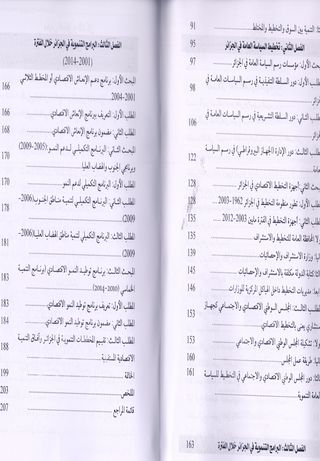 ثا: التنمية بين السوق والتخطيط والمخطط 91
الفصل الثاني: تخطيط السياسة العامة في الجزائر 95
حث الأول: مؤسسات رسم السياسة العامة في الجزائر
طلب الأول: دور السلطة التنفيذية في رسم السياسات العامة في
زائر 97
طلب الثاني: دور السلطة التشريعية في رسم السياسة العامة في
زائر 106
طلب الثالث: دور الإدارة (الجهاز البيروقراطي) في رسم السياسة
مة في الجزائر 122
حث الثاني: أجهزة التخطيط الاقتصادي في الجزائر 128
طلب الأول: تطور منظومة التخطيط في الجزائر 1962-2003 128
طلب الثاني: أجهزة التخطيط في الفترة مابين 2003-2012 135
لا: المحافظة العامة للتخطيط والاستشراف 135
يا: وزارة الاستشراف والإحصائيات 139
ثا: كتابة الدولة مكلفة بالاستشراف والإحصائيات 145
بعا: مديريات التخطيط داخل الهياكل المركزية للوزارات 146
حث الثالث: المجلس الوطني الاقتصادي والاجتماعي كجهاز
تشاري يعنى بالتخطيط الاقتصادي
ولا: تشكيلة المجلس الوطني الاقتصادي والاجتماعي
نيا: طريقة عمل المجلس 160
ثا: دور المجلس الوطني الاقتصادي والاجتماعي في التخطيط للسياسة 161
العامة التنموية
الفصل الثالث: البرامج التنموية في الجزائر خلال الفترة 163
الفصل الثالث: البرامج التنموية في الجزائر خلال الفترة
(2001-2014)
المبحث الأول: برنامج دعم الإنعاش الاقتصادي أو المخطط الثلاثي 166
2001-2004
المطلب الأول: تعريف برنامج الإنعاش الاقتصادي 166
المطلب الثاني: مضمون برنامج الإنعاش الاقتصادي 168
المبحث الثاني: البرنامج التكميلي لدعم النمو (2005-2009) 170
وبرنامجي الجنوب والهضاب العليا
المطلب الأول: البرنامج التكميلي لدعم النمو 171
المطلب الثاني: البرنامج التكميلي لتنمية مناطق الجنوب (2006- 178
2009)
المطلب الثالث: البرنامج التكميلي لتنمية مناطق الهضاب العليا (2006- 181
2009)
المبحث الثالث: برنامج توطيد النمو الاقتصادي (برنامج التنمية 183
الخماسي
المطلب الأول: تعريف برنامج توطيد النمو الاقتصادي 183
المطلب الثاني: مضمون برنامج توطيد النمو الاقتصادي 184
المطلب الثالث: تقييم المخططات التنموية في الجزائر وآفاق التنمية 188
الاقتصادية المستقبلية
الخاتمة 199
الملخص 203
قائمة المراجع 207